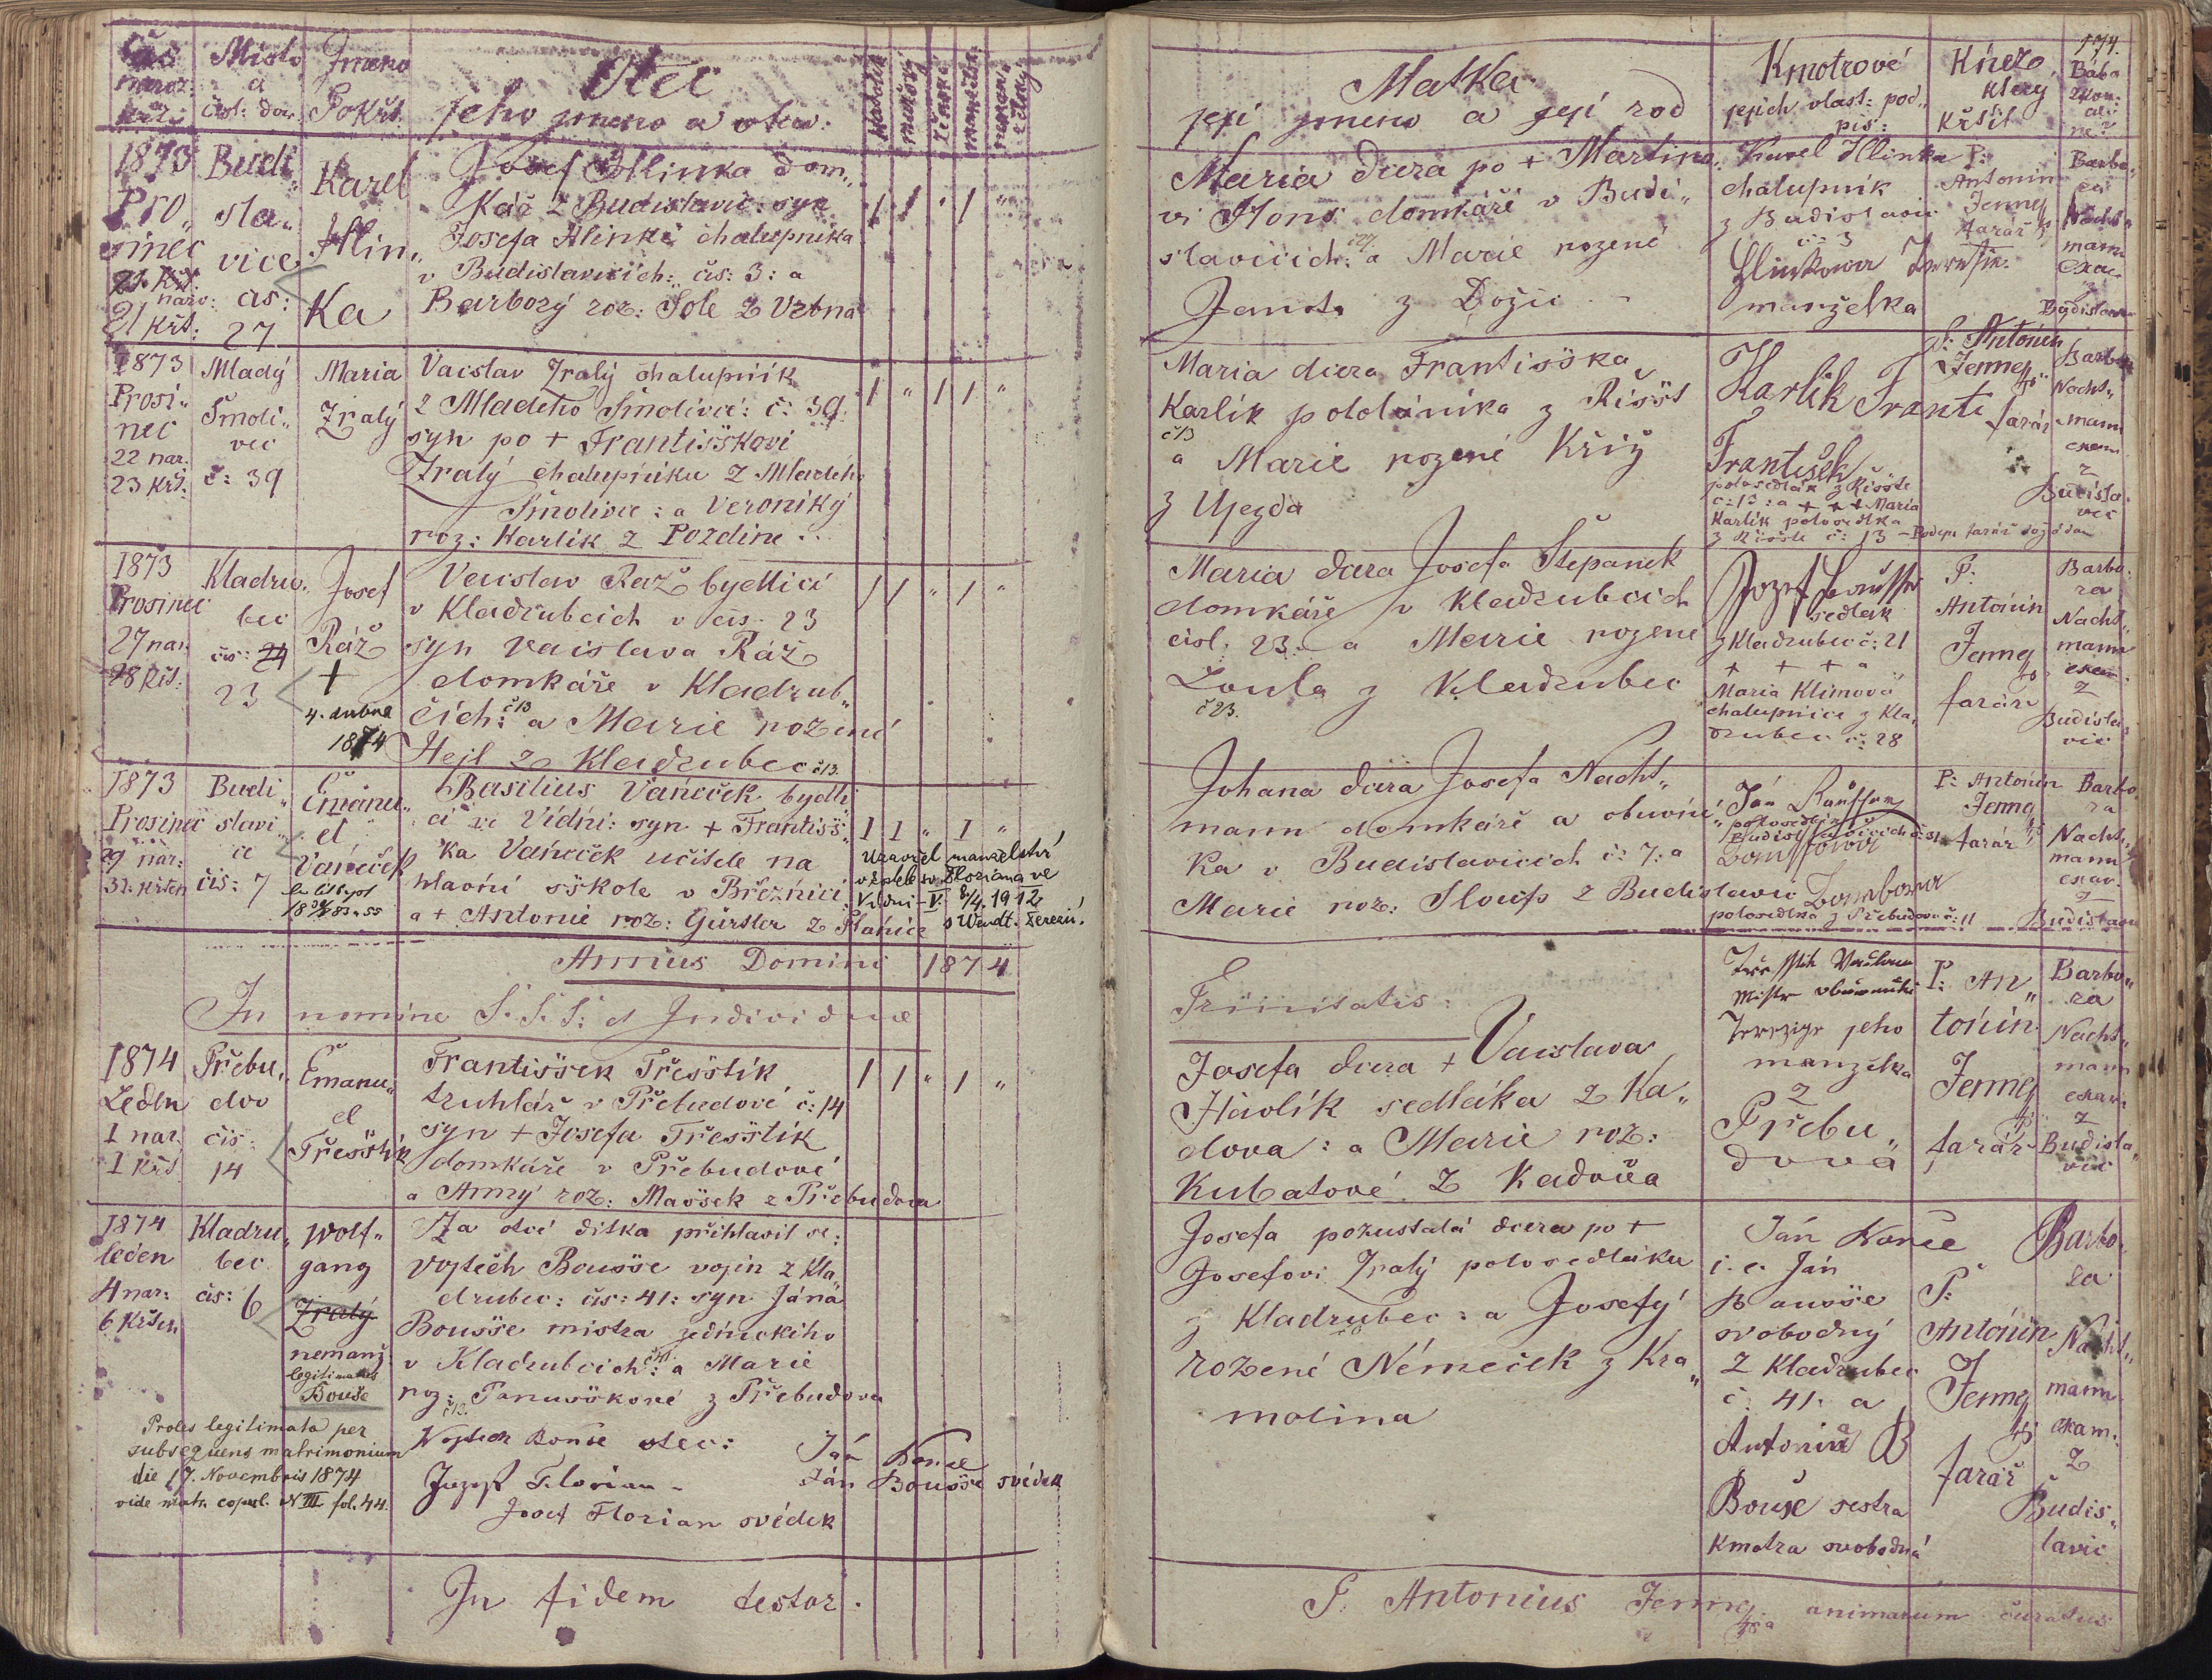 Místo
a
čísl: dom.
Jmeno
Pokřt.
Otec
jeho jmeno a otcu:
1873
Pro„
sinec
21 křt:
Budi„
sla„
vice
čis:
27
Karel
Hlin„
ka
Josef Hlinka dom„
kář z Budislavic: syn
Josefa Hlinki chalupníka
v Budislavicich: čis: 3: a
Barborý roz: Šole z Vrbna
1873
Prosi„
nec
22 nar.
23 křt.
Mladý
Smoli„
vec
č: 39
Maria
Zralý
Vacslav Zralý chalupník
z Mladeho Smolivce: č: 39.
syn po + Frantisškovi
Zralý chalupníku z Mladého
Smolivce: a Veroniký
roz: Karlik z Pozdine..
1873
Prosinec
27 nar.
28 křt.
Kladru„
bec
čis: 24
23
Josef
Ráž
+
4. dubna
1874
Vacslav Raž bydlící
v Kladrubcich v čis. 23
syn Vacslava Ráž
domkáře v Kladrub„
cich: č 13 a Marie rozené
Hejl z Kladrubec č 13.
1873
Prosinec
29 nar:
31. křten
Budi„
slavi„
ce
čis: 7
Emanu„
el
Váneček
Basilius Váneček bydlí
cí ve Vídni: syn + Frantisš„
ka Váneček učitele na
hlavní sškole v Březnici
a + Antonie roz: Gürtler z Planice
Uzavřel manželství
v kostele sv. Floriana ve
Vídni - V. 8/4. 1912
s Wendt. Terezií.
Annus Domini 1874
In nomine S. S. S: et Individuae
1874
Leden
1 nar.
1 křt
Přebu„
dov
čis:
14
Emanu„
el
Třesštík
Frantisšek Třesštík
truhlář v Přebudově č: 14
syn + Josefa Třesštík
domkáře v Přebudově
a Anný roz: Masšek z Přebudova
1874
leden
4 nar:
6 křten
Kladru„
bec
čis: 6
Wolf„
gang
Zralý
nemanž.
legitimatus
Bouše
Za otce dítka přihlasil se:
Vojtěch Bousše vojín z Kla„
drubec: čis: 41: syn Jána
Bousše mistra zednickiho
v Kladrubcich: č 41. a Marie
roz: Panusškové z Přebudova
č 12.
Proles legitimata per
subsequens matrimonium
die 17. Novembris 1874
vide matr. copul. N III fol. 44.
Wojtěch Bouše otec:
Ján Bouse
Jozef Florian -
Ján Bousše svědek
Josef Florian svědek
In fidem testor.
174.
Matka
její jmeno a její rod
Kmotrové
jejich vlast: pod„
pis:
Kněz
který
křtil
Bába
zkou:
ne?
Maria dcera po + Martino„
vi Hons domkáři v Budi„
slavicich: č 27. a Marie rozené
Janota z Dožic -
Karel Hlinka
chalupník
z Budislavic
čis 3
Hlinkowa
manželka
P:
Antonin
Jenney
farář
Barbo„
ra
Nacht„
mann
exam:
z
Budislavic
Maria dcera Frantisška
Karlík pololánika z Řisšt
č 13
a Marie rozené Křiž
z Ujezda
Karlik Franti
František
polosedlák z Řisšte
č: 13: a + + + Maria
Karlik polosedlka
z Řisšte č: 13
P: Antonin
Jenney
farář
Barbora
Nacht„
mann
exam
z
Budisla„
vic
Maria dcera Josefa Štepanek
domkáře v Kladrubcich
čisl: 23: a Marie rozene
Loula z Kladrubec
č 23.
Jozef
sedlak
z Kladrubec č: 21
+ + + a
Maria Klimova
chalupnice z Kla„
drubec č: 28
P:
Antonin
Jenney
farář
Barbo„
ra
Nacht„
mann
exam:
z
Budisla„
vic
Johana dcera Josefa Nacht„
mann domkáře a obuvní„
ka v Budislavicich č: 7: a
Marie roz: Sloup z Budislavic
Ján
polosedlák v
Budislavicich č: 31
polosedlka z Přebudova č: 11
P: Antonin
Jenney
farář
Barbo„
ra
Nacht„
mann
exam.
z
Budislavic
Trinitatis:
Josefa dcera + Vacslava
Havlík sedláka z Ka„
dova: a Marie roz:
Kubatové z Kadova
Třesstik Václaw
Mistr obuwnicki
Terezige jeho
manzelka
z
Přebu„
dova
P: An„
tonin
Jenney
farář
Barbo„
ra
Nacht„
mann
exam:
z
Budisla„
vic
Josefa pozustalá dcera po +
Josefovi Zralý polosedláku
z Kladrubec: a Josefý
rozené Némeček z Kra„
molina
Ján Bouše
i. e. Ján
Bousše
svobodný
z Kladrubec
č: 41: a
Antonia B
Bouše sestra
kmotra svobodná
P:
Antonin
Jenney
farář
Barbo„
ra
Nacht„
mann
exam:
z
Budis„
lavic
P. Antonius Jenney animarum curatus